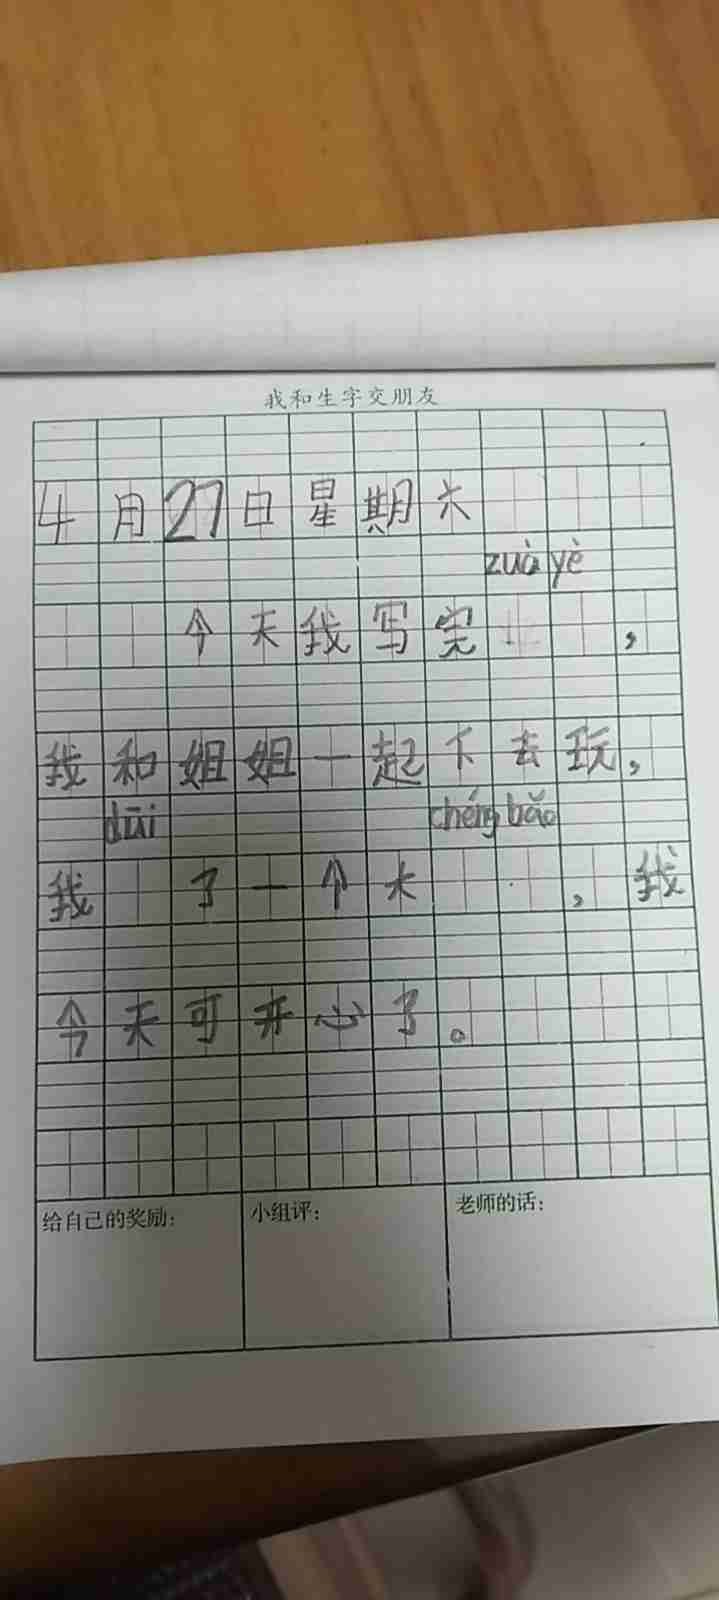 我和生字交朋友
4月27日星期六
zuò yè
今天我写完,
我和姐姐一起下去玩,
dūi chéng bǎo
我 了一个大 ,我
今天可开心了。
给自己的奖励: 小组评: 老师的话: